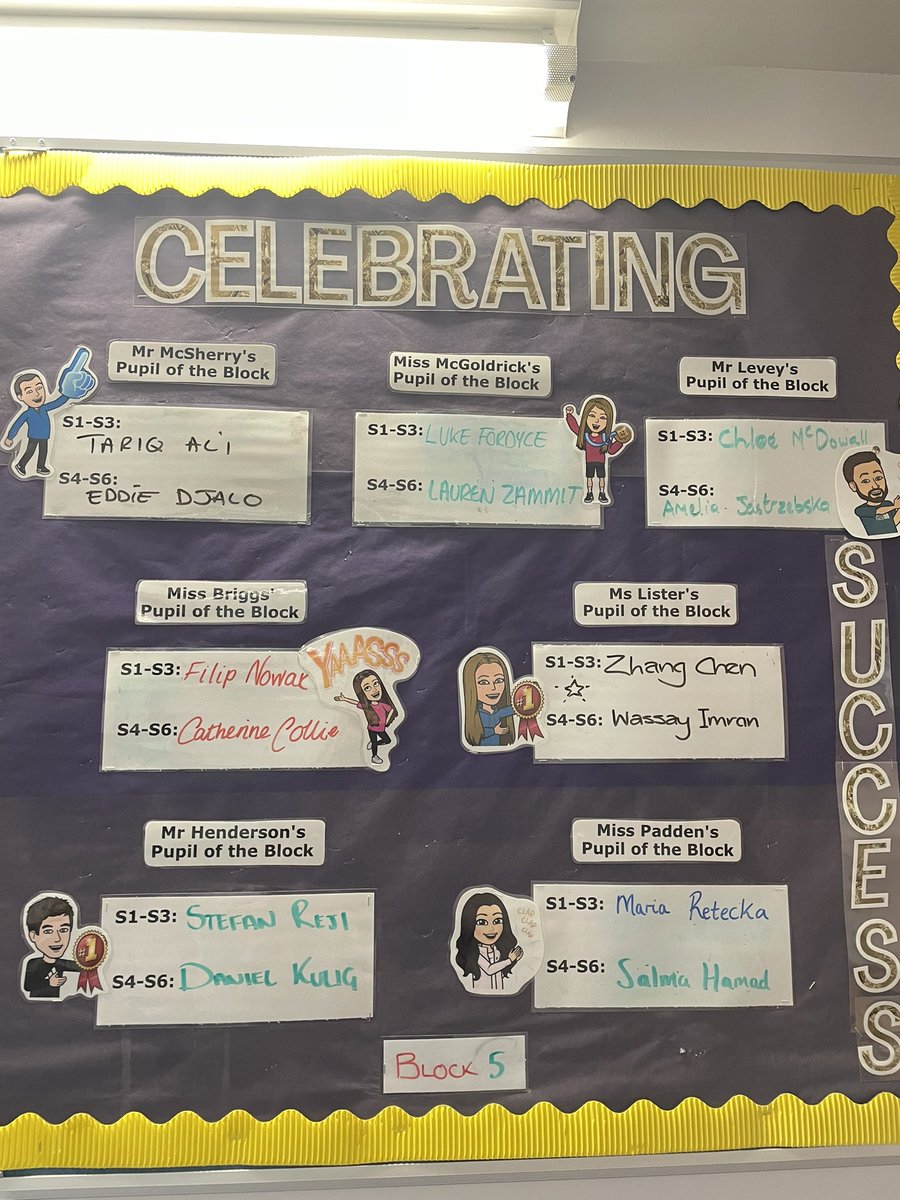 CELEBRATING
Mr McSherry's
Pupil of the Block
S1-S3:
TARIQ ALI
S4-S6:
EDDIE DJALO
Miss McGoldrick's
Pupil of the Block
S1-S3: LUKE FORDYCE
S4-S6: LAUREN ZAMMIT
Mr Levey's
Pupil of the Block
S1-S3: Chloe McDowall
S4-S6:
Amelia Jastrzebska
SUCCESS
Miss Briggs'
Pupil of the Block
S1-S3: Filip Nowak
S4-S6: Catherine Collie
YAAASSS
Ms Lister's
Pupil of the Block
#1
S1-S3: Zhang Chen
S4-S6: Wassay Imran
Mr Henderson's
Pupil of the Block
#1
S1-S3: STEFAN REJI
S4-S6: DANIEL KULIG
Miss Padden's
Pupil of the Block
CLAP
CLAP
CLAP
S1-S3: Maria Retecka
S4-S6: Salma Hamad
BLOCK 5